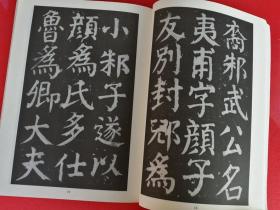 裔邾武公名
夷甫字顔子
友別封郳爲
小邾子遂以
顔爲氏多仕
魯爲卿大夫